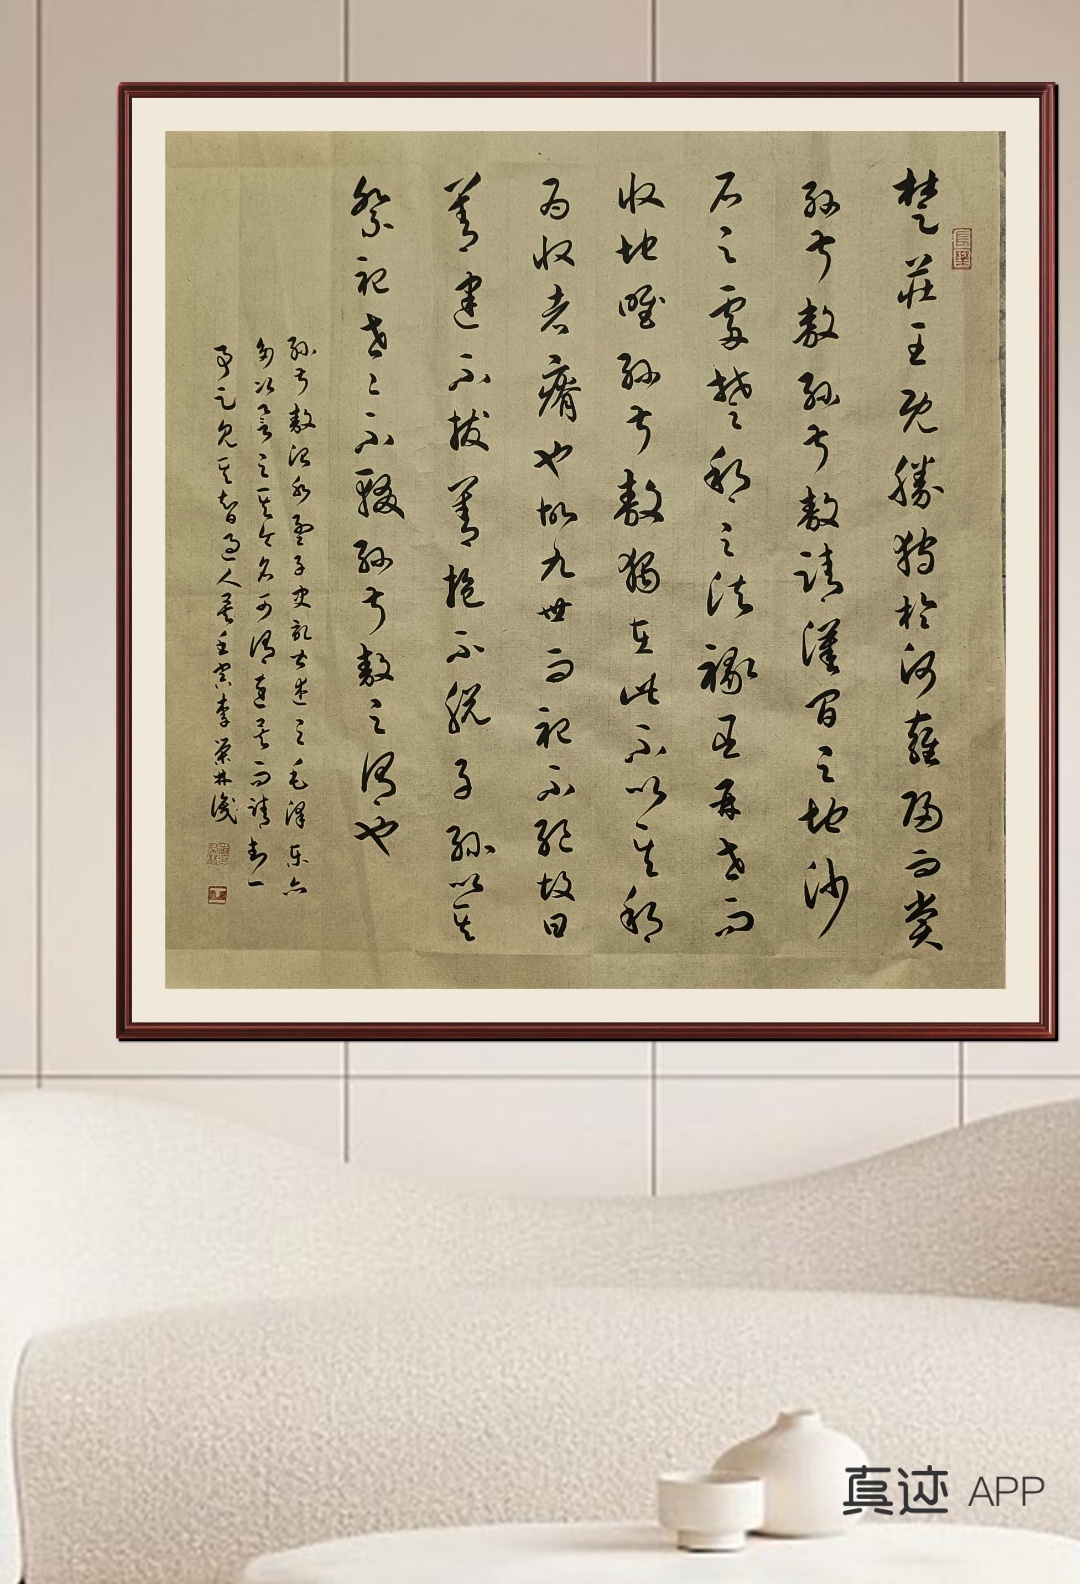 楚莊王既勝狩於河雍歸而賞
孫叔敖孫叔敖請漢間之地沙
石之處楚邦之法祿臣再世而
收地唯孫叔敖獨在此不以其邦
為收者瘠也故九世而祀不絕故曰
善建不拔善抱不脫子孫以其
祭祀世〻不輟孫叔敖之謂也
孫叔敖治水孟子史記述之毛澤東亦
多次言之其令名可謂遠矣而請封一
事足見其智過人矣壬寅李榮林識
真迹 APP